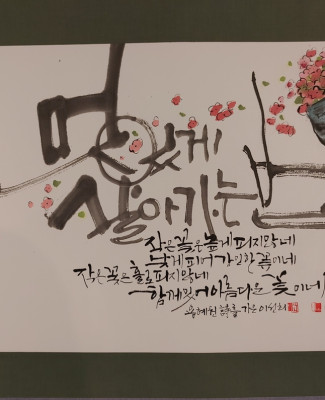 멋있게
살아가는
작은 꽃은 높게 피지 않네
낮게 피어 강인한 꽃이네
작은 꽃은 홀로 피지 않네
함께 있어 아름다운 꽃이네
용혜원 가은 이선희